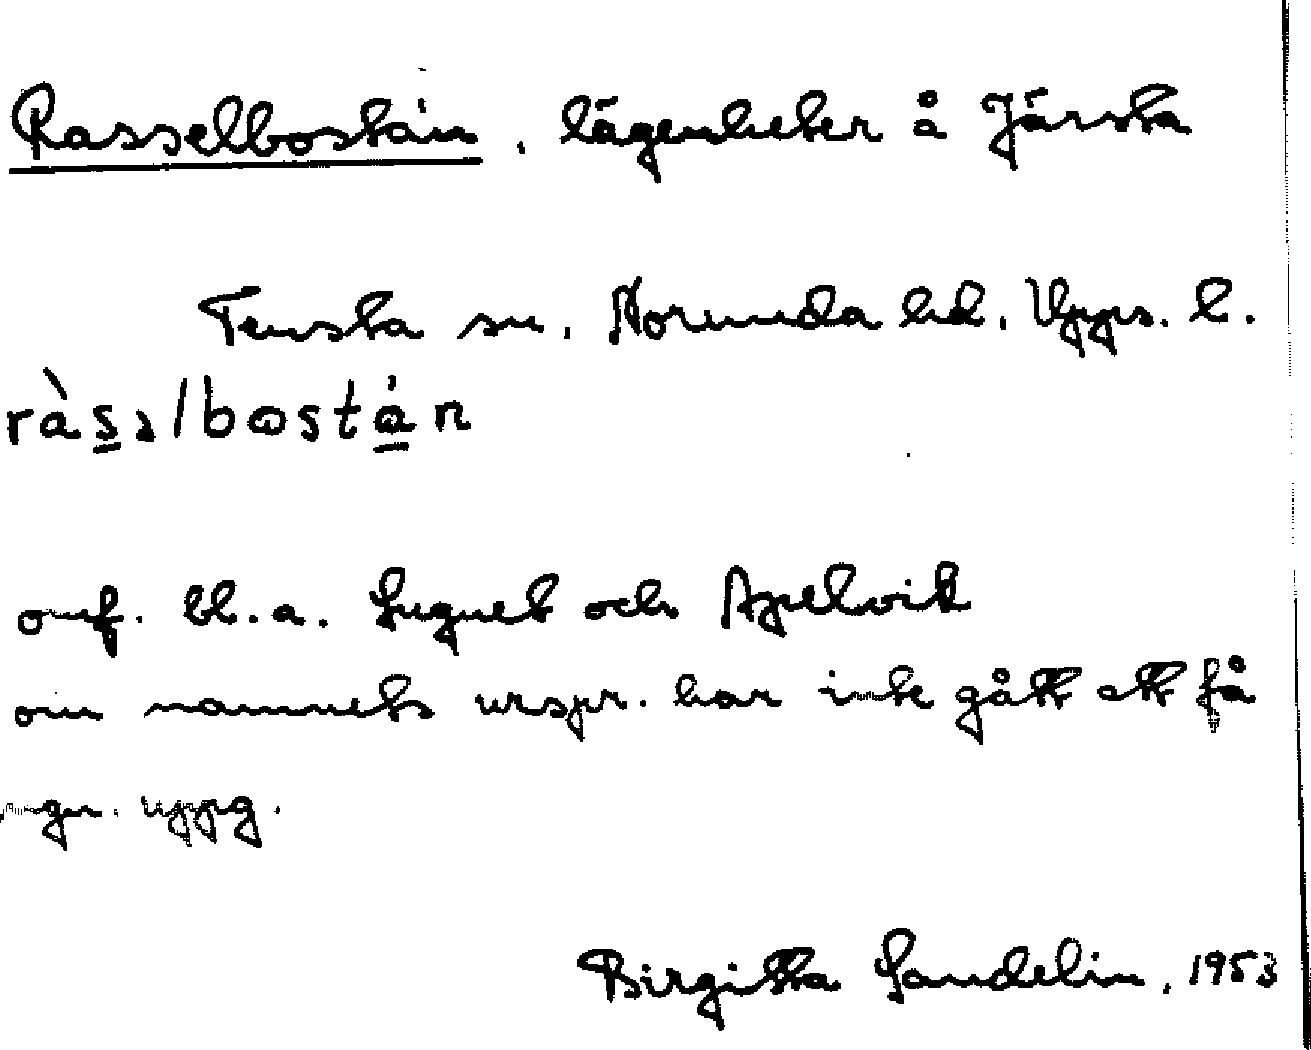 Rasselbostán, lägenheter å Järsta
Tensta sn. Norunda hd. Upps. l.
ràs̲əlbostá̲n
omf. bl.a. Lugnet och Apelvik
om namnets urspr. har inte gått att få
ngn. uppg.
Birgitta Sandelin, 1953